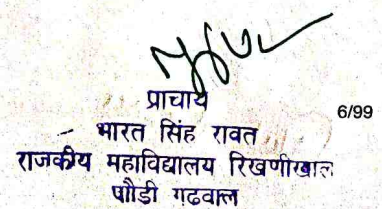 प्राचार्य
6/99
भारत सिंह रावत
राजकीय महाविद्यालय रिखणीखाल
पौडी गढवाल